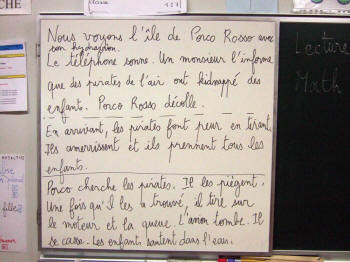 Nous voyons l'île de Porco Rosso avec
son hydravion.
Le téléphone sonne. Un monsieur l'informe
que des pirates de l'air ont kidnappé des
enfant. Porco Rosso décolle.
En arrivant, les pirates font peur en tirant.
Ils amerrissent et ils prennent tous les
enfants.
Porco cherche les pirates. Il les piègent.
Une fois qu'il les a trouvé, il tire sur
le moteur et la queue. L'avion tombe. Il
se casse. Les enfants sautent dans l'eau.
Lecture
Math